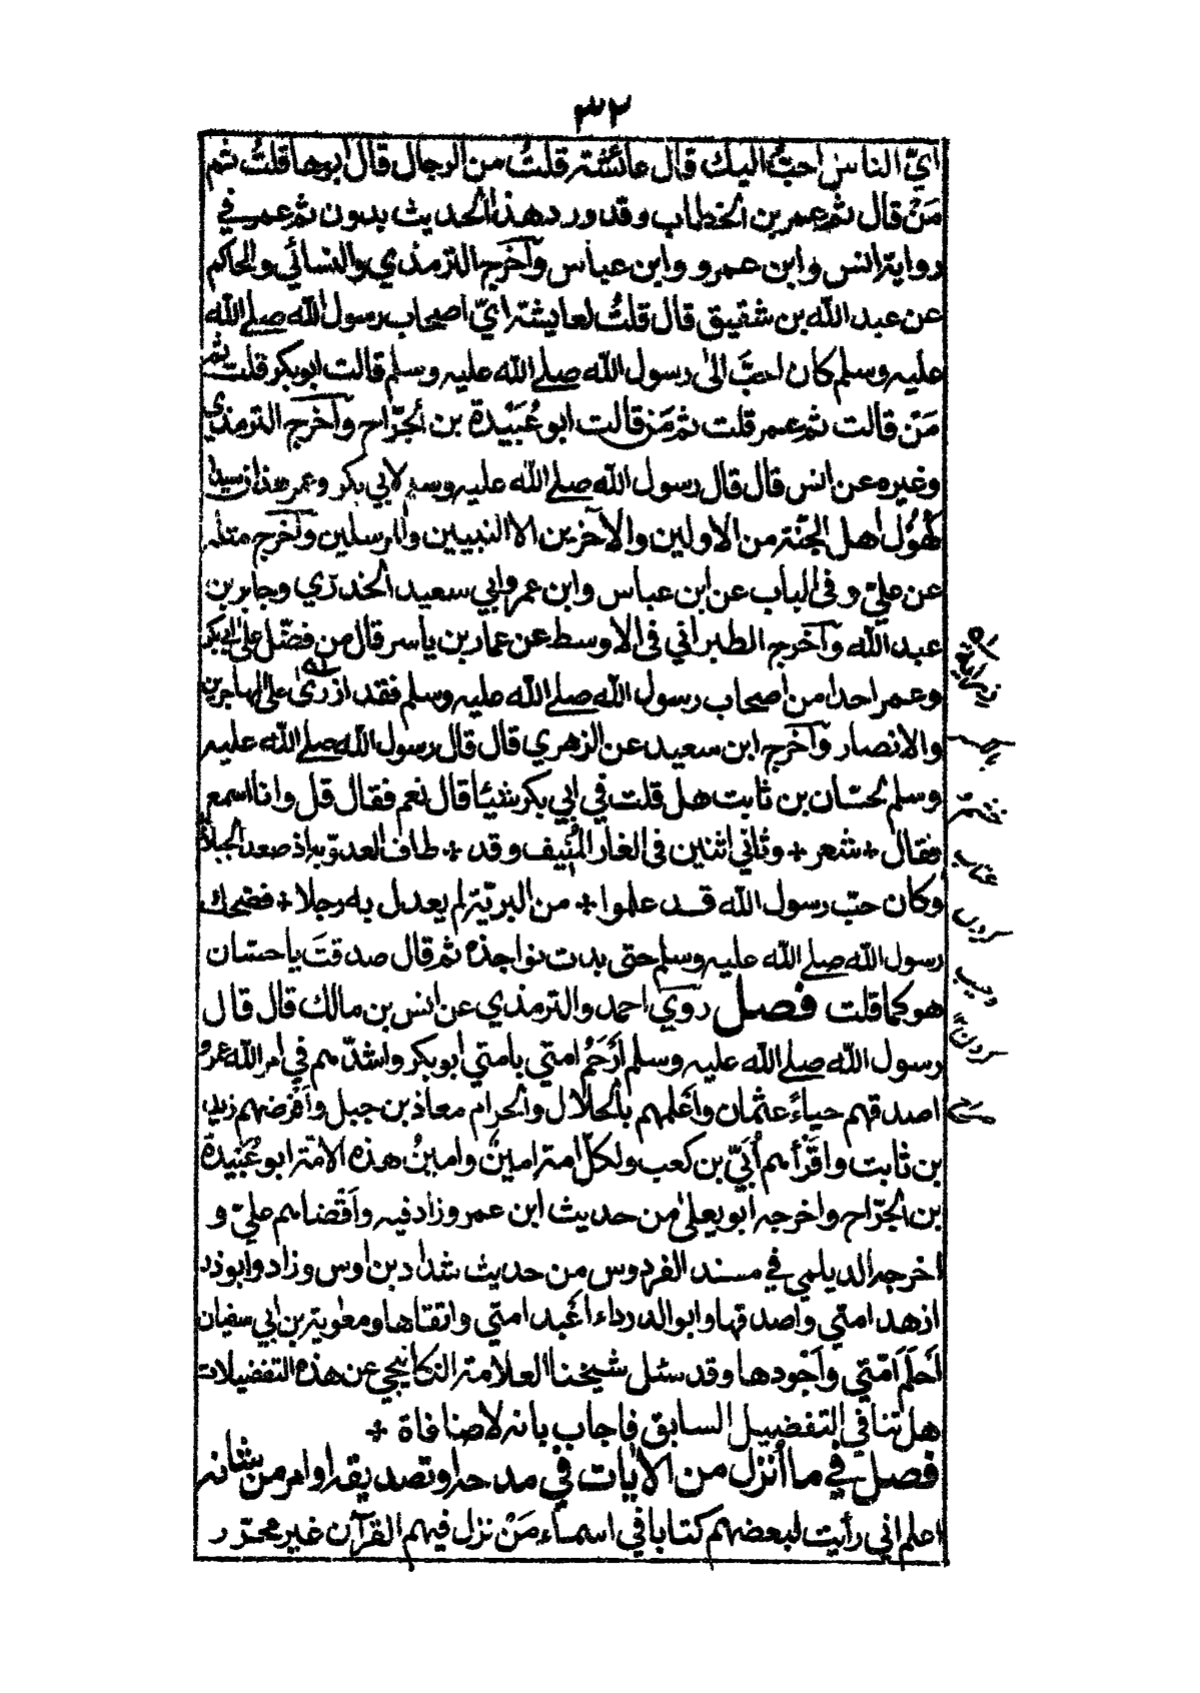 ٣٢
ايّ الناس احبُّ اليك قال عائشة قلتُ من الرجال قال ابوها قلتُ ثم
مَنْ قال ثم عمر بن الخطاب وقد ورد هذا الحديث بدون ثم عمر في
رواية انس وابن عمرو وابن عباس وآخرج الترمذي والنسائي والحاكم
عن عبد الله بن شقيق قال قلتُ لعايشة ايّ اصحاب رسول الله صلے الله
عليه وسلم كان احبَّ الى رسول الله صلے الله عليه وسلم قالت ابو بكر قلت ثم
مَنْ قالت ثم عمر قلت ثم مَنْ قالت ابو عُبَيْدة بن الجرّاح وآخرج الترمذي
وغيره عن انس قال قال رسول الله صلے الله عليه وسلم لابي بكر وعمر هذان سيدا
كُهُوْل اهل الجنّة من الاولين والآخرين الا النبيين والمرسلين وآخرج مثله
عن عليّ وفى الباب عن ابن عباس وابن عمر وابي سعيد الخدري وجابر بن
عبد الله وآخرج الطبراني فى الاوسط عن عمار بن ياسر قال من فضّل على ابي بكر
وعمر احدا من اصحاب رسول الله صلے الله عليه وسلم فقد ازرى على المهاجرين
والانصار وآخرج ابن سعيد عن الزهري قال قال رسول الله صلے الله عليه
وسلم لحسّان بن ثابت هل قلت في ابي بكر شيئا قال نعم فقال قل وانا اسمع
فقال + شعر + وثاني اثنين فى الغار المُنِيف وقد + طاف العدوّ به اذ صعد الجبلا
وكان حبّ رسول الله قد علموا + من البريّة لم يعدل به رجلا + فضحك
رسول الله صلے الله عليه وسلم حتى بدت نواجذه ثم قال صدقتَ يا حسّان
هو كما قلت فصل روي احمد والترمذي عن انس بن مالك قال قال
رسول الله صلے الله عليه وسلم اَرْحَمُ امتي بامتي ابو بكر واشدّهم في امر الله عمر و
اصدقهم حياءً عثمان واَعْلمهم بالحلال والحرام معاذ بن جبل واَفْرضهم زيد
بن ثابت واقَرْأهم اُبَيّ بن كعب ولكلّ امة امينٌ وامينُ هذه الامّة ابو عُبَيدة
بن الجرّاح واخرجه ابو يعلى من حديث ابن عمر وزاد فيه واَقْضاهم عليّ و
اخرجه الديلمي في مسند الفردوس من حديث شداد بن اوس وزاد وابو ذر
ازهد امتي واصدقها وابو الدرداء اَعْبد امتي واتقاها ومعوية بن ابي سفيان
اَحْلَم اُمّتي واَجْودها وقد سئل شيخنا العلامة الكانيجي عن هذه التفضيلات
هل تنافى التفضيل السابق فاجاب بانه لا منافاة +
فصل في ما اُنْزل من الاٰيات في مدحه او تصديقه او امر من شانه
اعلم اني رأيت لبعضهم كتابا في اسماء مَنْ نزل فيهم القرآن غير محرّر